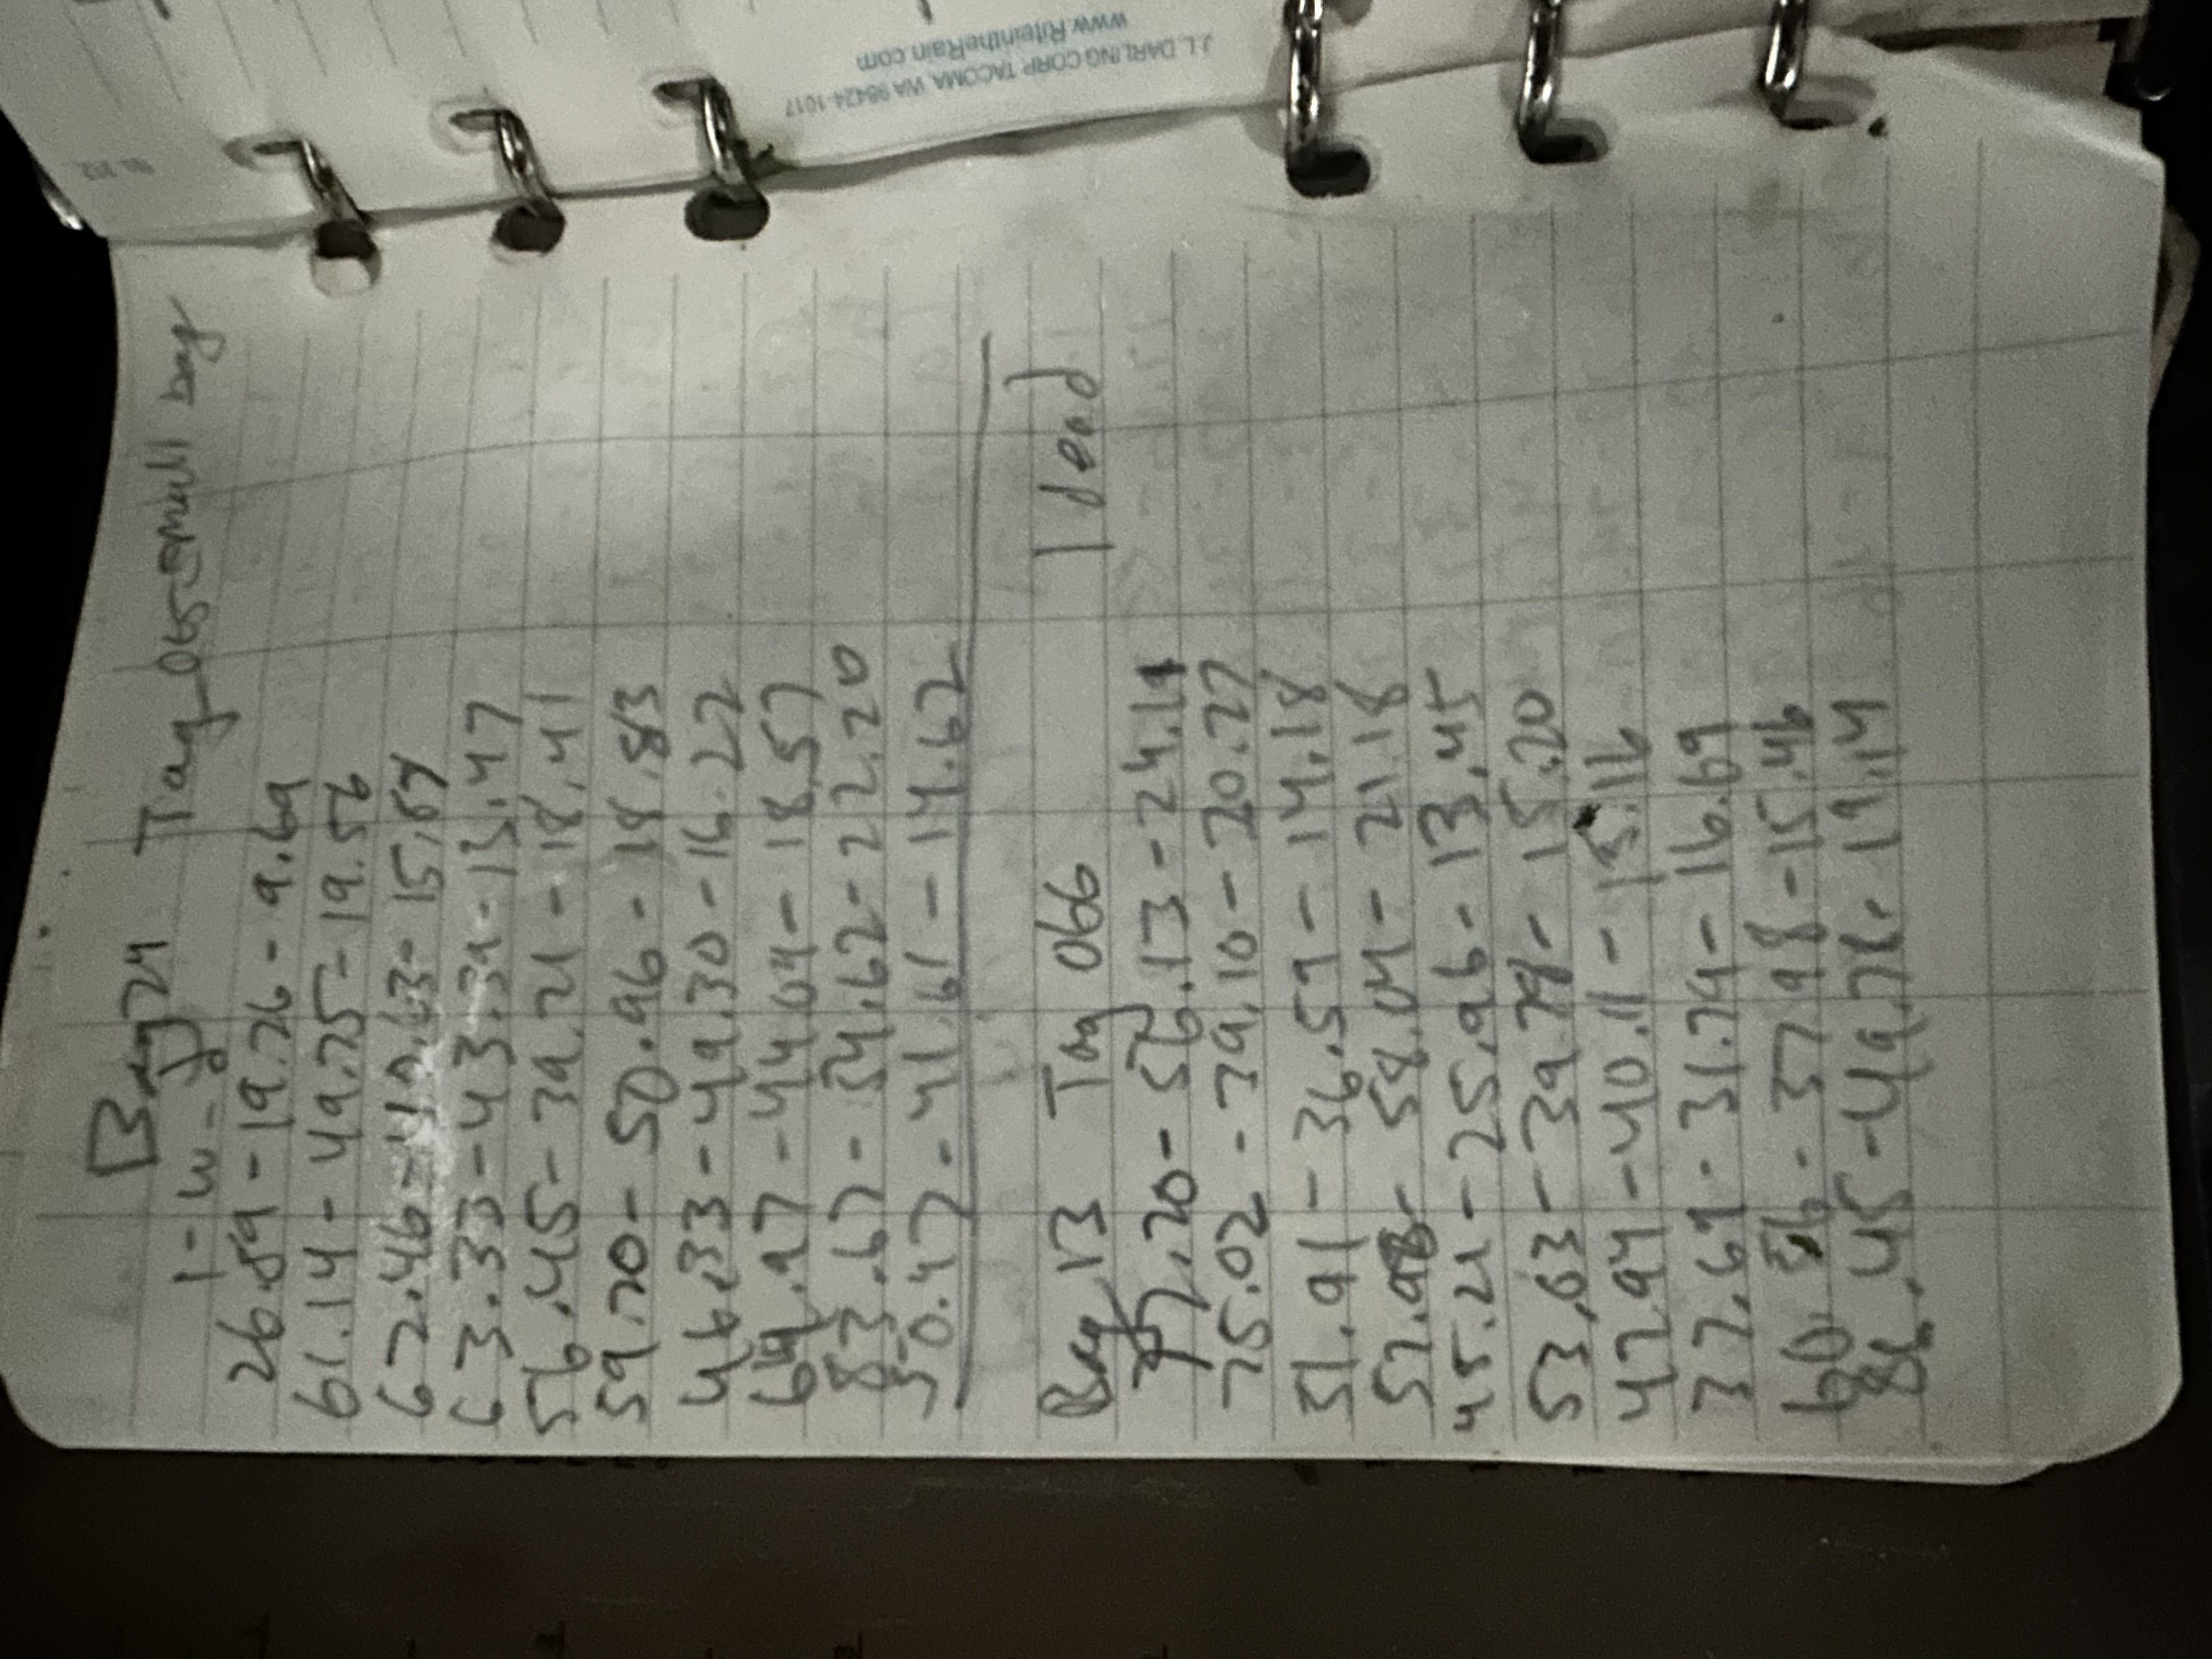 Bag 24 Tag 065 small bag
1-w-g
26.89 - 19.26 - 9.69
61.14 - 49.75 - 19.56
62.46 - 40.63 - 15.67
63.33 - 43.39 - 15.47
56.45 - 39.21 - 18.41
59.70 - 50.96 - 18.83
46.33 - 49.30 - 16.22
64.97 - 44.64 - 18.57
83.67 - 54.62 - 22.20
50.47 - 41.61 - 14.62
Bag 13 Tag 066 1 dead
77.20 - 56.13 - 24.11
75.02 - 79.10 - 20.27
51.91 - 36.59 - 14.18
57.98 - 58.04 - 21.18
45.21 - 25.96 - 13.45
53.63 - 39.78 - 15.20
47.94 - 40.11 - 15.16
37.69 - 31.74 - 16.69
60.56 - 37.98 - 15.46
86.45 - 49.78 - 19.14
J. L. DARLING CORP. TACOMA, WA 98424-1017
www.RiteintheRain.com